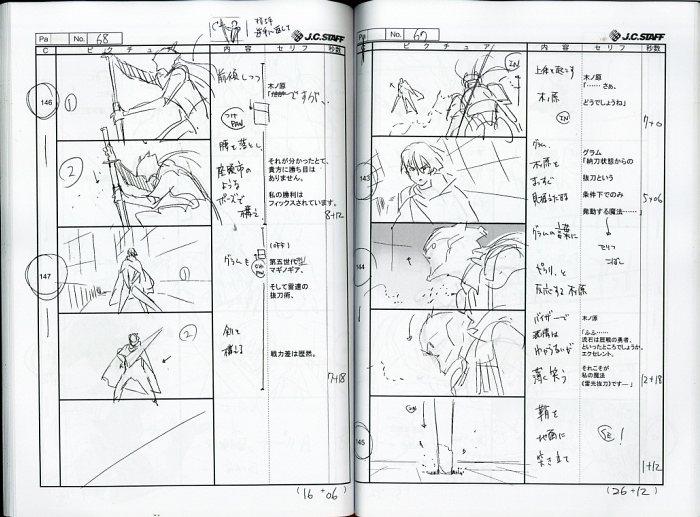 Pa
No. 68
J.C.STAFF
C
ピクチュア
内容
セリフ
秒数
146
①
前傾しつつ
木ノ原
ですが、
つけ
PAN
②
腰を落とし、
座頭市の
ような
ポーズで
構え
それが分かったとて、
貴方に勝ち目は
ありません。
私の勝利は
フィックスされています。
8+12
147
①
グラムも
第五世代型
マギノギア、
そして雷速の
抜刀術、
②
剣を
構える
戦力差は歴然。
7+18
(16+06)
Pa
No. 67
J.C.STAFF
C
ピクチュア
内容
セリフ
秒数
IN
上体を起こす
木ノ原
IN
木ノ原
「……さぁ、
どうでしょうね」
7+0
143
グラム、
木ノ原を
まっすぐ
見据える
グラム
「納刀状態からの
抜刀という
条件下でのみ
発動する魔法……」
5+06
144
グラムの言葉に
セリフ
こぼし
ぴくり、と
反応する木ノ原
バイザーで
表情は
わからないが
薄く笑う
木ノ原
「ふふ……
流石は歴戦の勇者、
といったところでしょうか。
エクセレント。
それこそが
私の魔法
《雷光抜刀》です―」
12+18
145
IN
鞘を
地面に
突き立て
SE!
1+12
(26+12)